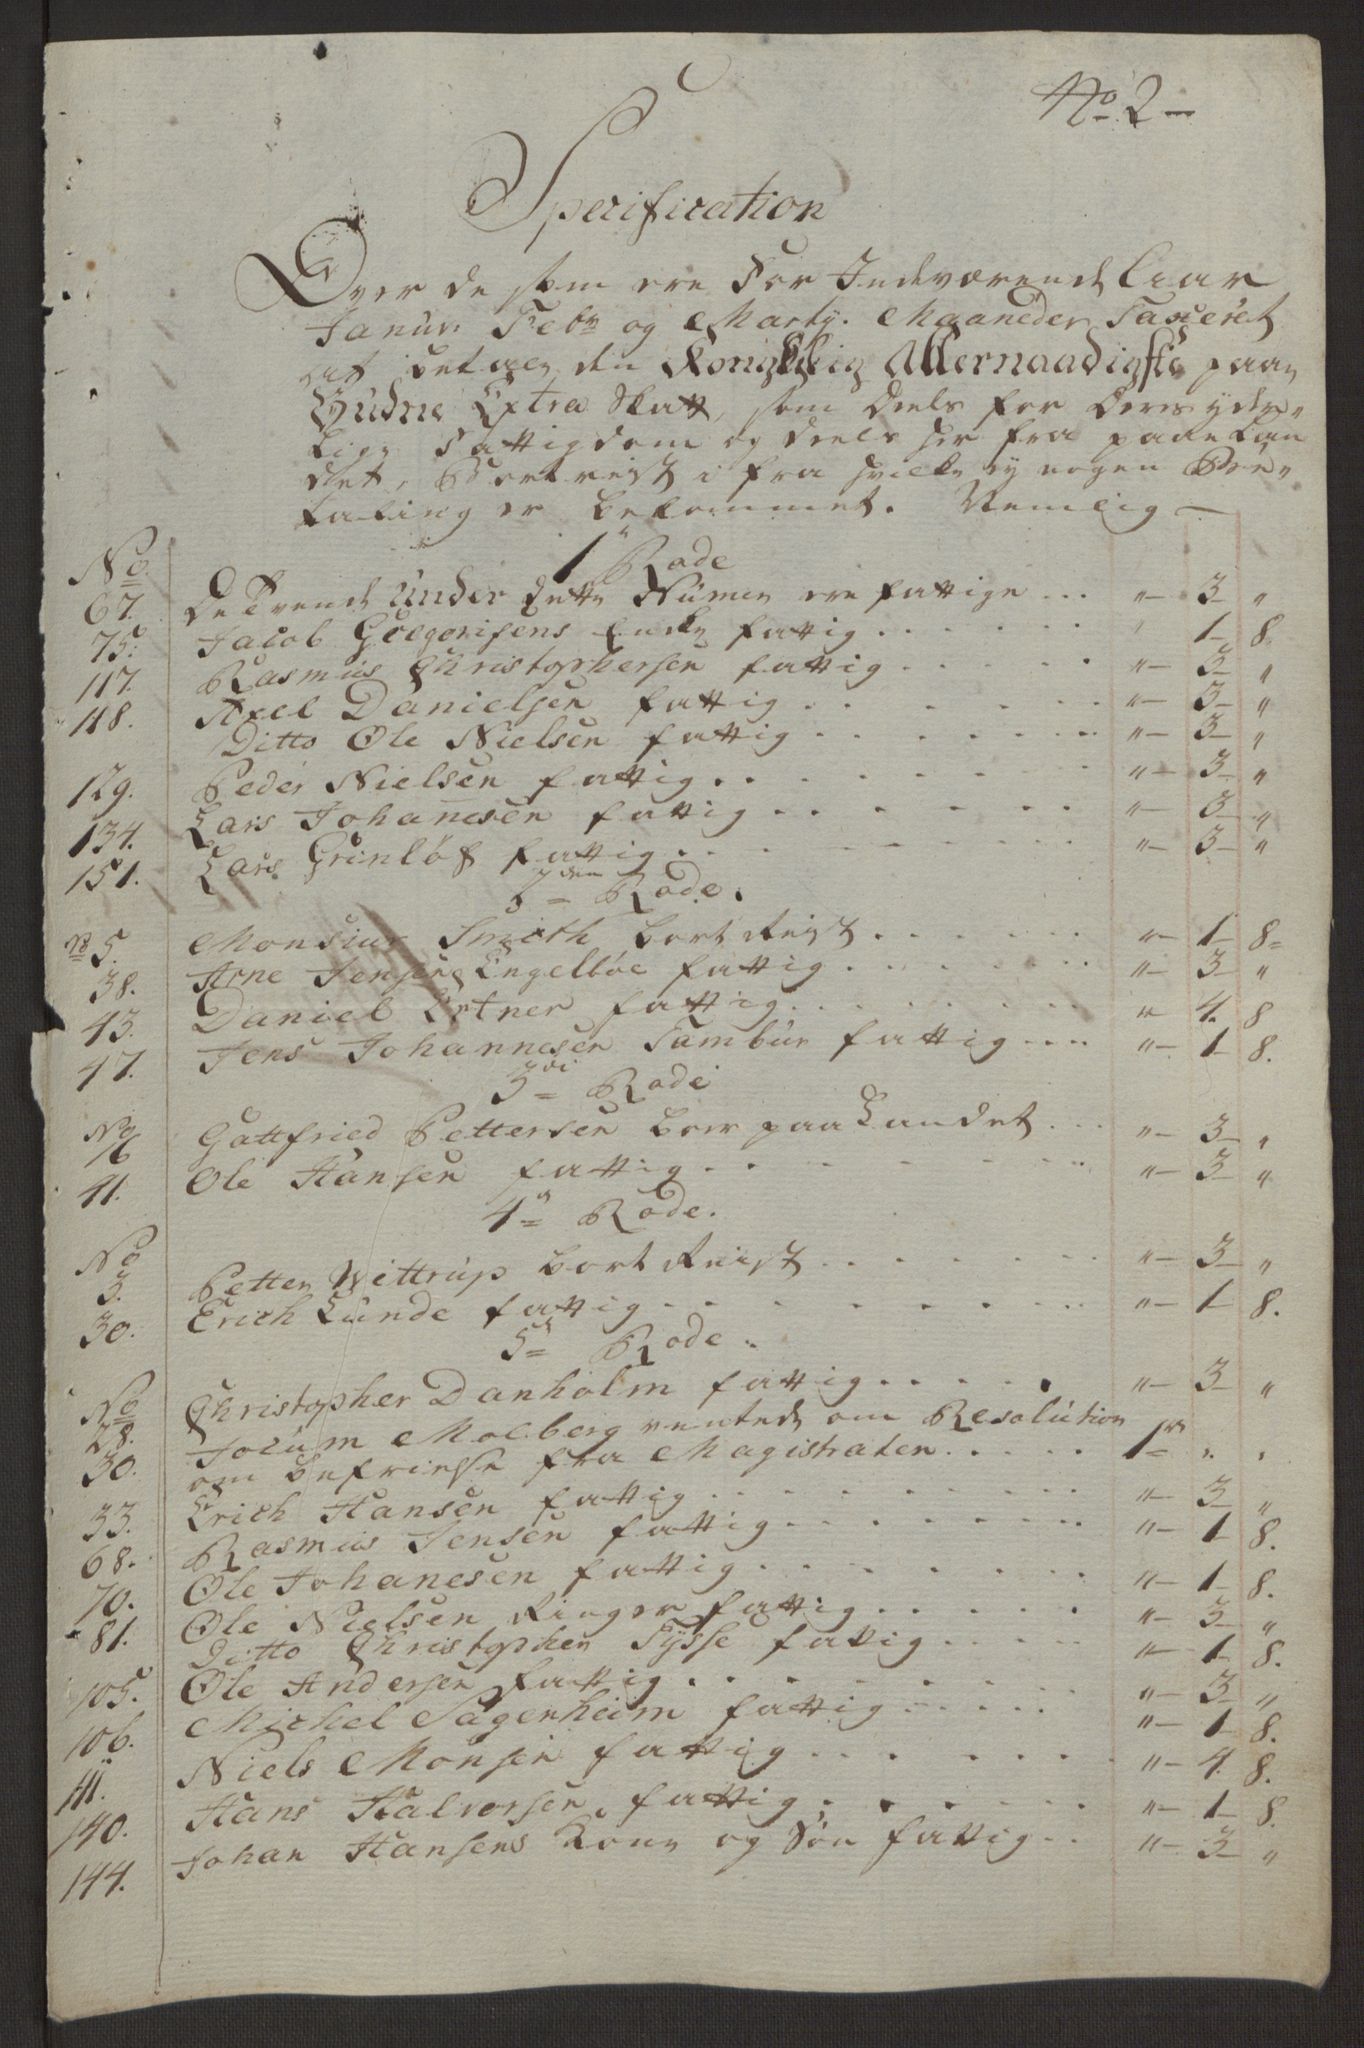 No 2 —
Specification
Over de som ere for Indeværende Aar
Janur. Febr og Marty. Maaneder Taxeret
at betale den Kongelig Allernaadigste paa
Budne Extra Skatt, som deels for deres yder„
lige Fattigdom og deels her fra paa Lan
det, Bortreist i fra hvilke ey nogen Be„
taling er bekommet. Nemlig —
1 Rode
No
67. De Tvende Under dette Numer ere fattige ... „ — 3 — „
75. Jacob Gregorisens Enke fattig ...... „ 1 — 8.
117. Rasmus Christophersen fattig ..... „ — 3 — „
118. Axel Danielsen fattig ...... „ — 3 — „
Ditto Ole Nielsen fattig ....... „ — 3 — „
129. Peder Nielsen fattig ....... „ — 3 — „
134. Lars Johanesen fattig ...... „ — 3 — „
151. Lars Grönlöf fattig ....... „ — 3 — „
2den Rode.
No 5. Monsiur Smith bortReist ...... „ — 1 — 8 =
38. Arne Jensens Engelböe fattig ...... „ — 3 — „
43. Daniel Ertner fattig ....... „ 4. 8
47. Jens Johannesen Tambur fattig .... „ — 1 — 8.
3di Rode
No
16 Gottfried Pettersen boer paa Landet ... „ — 3 — „
41. Ole Hansen fattig ....... „ — 3 — „
4 = Rode.
No
3. Petter Wittrup bortReist ....... „ — 3 — „
30. Erich Lunde fattig ........ „ — 1 — 8.
5 = Rode.
No
28. Christopher Danholm fattig ..... „ — 3 — „
30. Jocum Molberg ventede om Resolution
om befrielse fra Magistraten ..... 1 „ „
33. Erich Hansen fattig ........ „ — 3 — „
68. Rasmus Jensen fattig ....... „ — 1 — 8.
70. Ole Johanesen fattig ....... „ — 1 — 8.
81. Ole Nielsen Ringer fattig ..... „ — 3 — „
Ditto Christopher Tysse fattig .... „ — 1 — 8.
105. Ole Andersen fattig ....... „ — 3 — „
106. Michel Sagenheim fattig ..... „ — 1 — 8.
111. Niels Monsen fattig ....... „ — 4. 8.
140. Hans Halvorsen fattig ...... „ — 1 — 8.
144. Johan Hansens Kone og Sön fattig .. „ — 3 — „